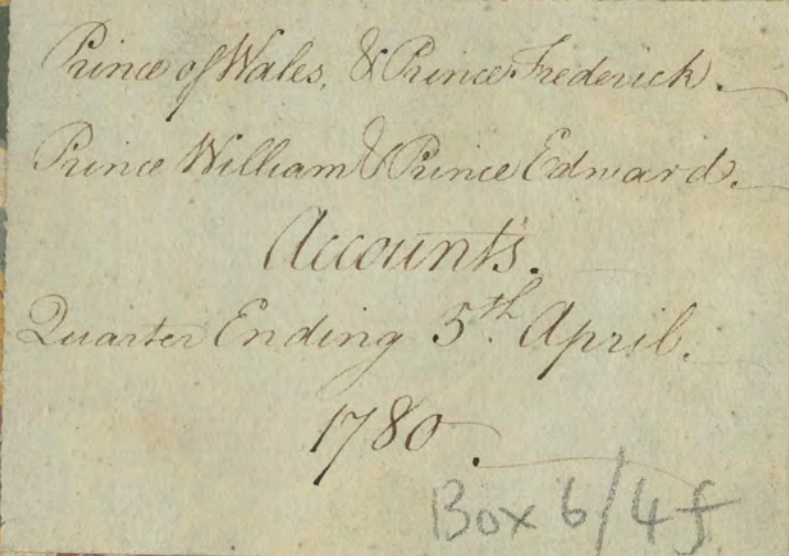 Prince of Wales, & Prince Frederick.
Prince William & Prince Edward.
Accounts.
Quarter Ending 5.th April.
1780.
Box 6/4f